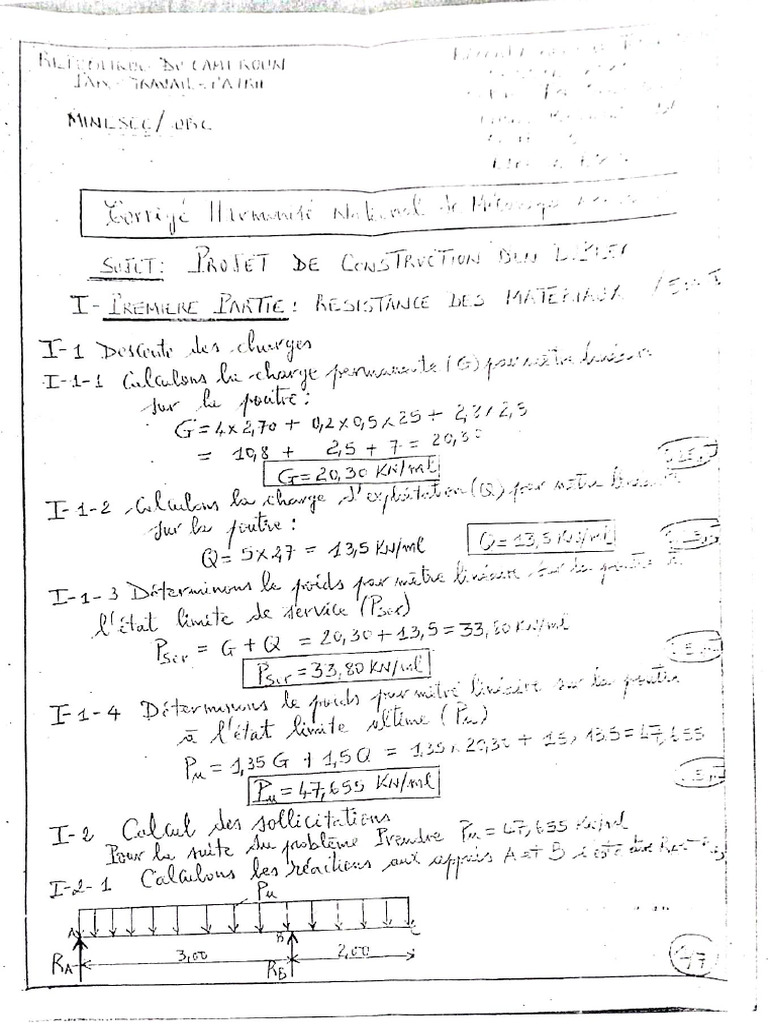 DU CAMEROUN
PAIX-TRAVAIL-PATRIE
MINESEC/OBC
Corrigé Harmonisé National de Mécanique
SUJET: PROJET DE CONSTRUCTION D'UN DUPLEX
I- PREMIERE PARTIE: RESISTANCE DES MATERIAUX
I-1 Descente des charges
I-1-1 Calculons la charge permanente (G) par mètre linéaire
sur la poutre:
G= 4x2,70 + 0,2x0,5x25 + 2,8x2,5
= 10,8 + 2,5 + 7 = 20,30
G=20,30 KN/ml
I-1-2 Calculons la charge d'exploitation (Q) par mètre linéaire
sur la poutre:
Q= 5x2,7 = 13,5 KN/ml Q=13,5 KN/ml
I-1-3 Déterminons le poids par mètre linéaire sur la poutre à
l'état limite de service (Pser)
Pser = G+Q = 20,30+13,5 = 33,80 KN/ml
Pser = 33,80 KN/ml
I-1-4 Déterminons le poids par mètre linéaire sur la poutre
à l'état limite ultime (Pu)
Pu = 1,35 G + 1,5Q = 1,35x20,30 + 1,5x13,5 = 47,655
Pu = 47,655 KN/ml
I-2 Calcul des sollicitations
Pour la suite du problème Prendre Pu = 47,655 KN/ml
I-2-1 Calculons les réactions aux appuis A et B
Pu
A B C
3,00 2,00
RA RB